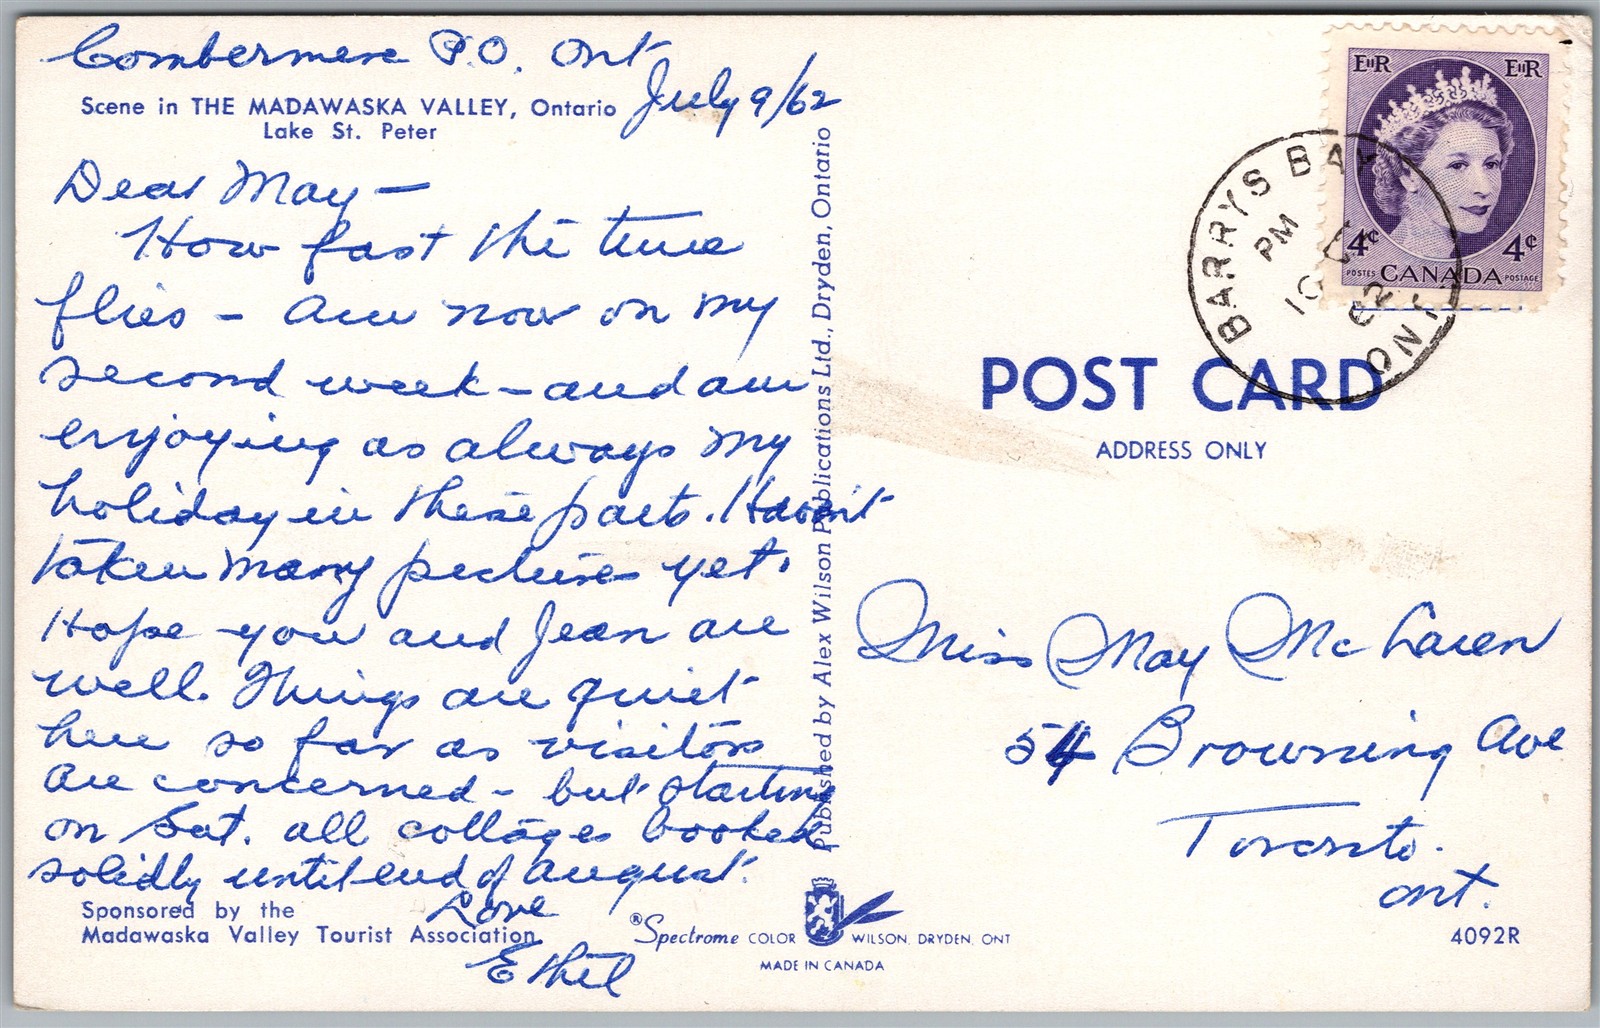 Combermere P.O. Ont
July 9/62
Scene in THE MADAWASKA VALLEY, Ontario
Lake St. Peter
Dear May —
How fast the time
flies - am now on my
second week - and am
enjoying as always my
holiday in these parts. Haven't
taken many pictures yet.
Hope you and Jean are
well. Things are quiet
here so far as visitors
are concerned - but starting
on Sat. all cottages booked
solidly until end of August.
Love
Ethel
Sponsored by the
Madawaska Valley Tourist Association
Published by Alex Wilson Publications Ltd., Dryden, Ontario
®Spectrome COLOR WILSON, DRYDEN, ONT
MADE IN CANADA
EIIR EIIR
4¢ 4¢
POSTES CANADA POSTAGE
BARRYS BAY
PM
10
62
ONT
POST CARD
ADDRESS ONLY
Miss May McLaren
54 Browning Ave
Toronto.
Ont.
4092R